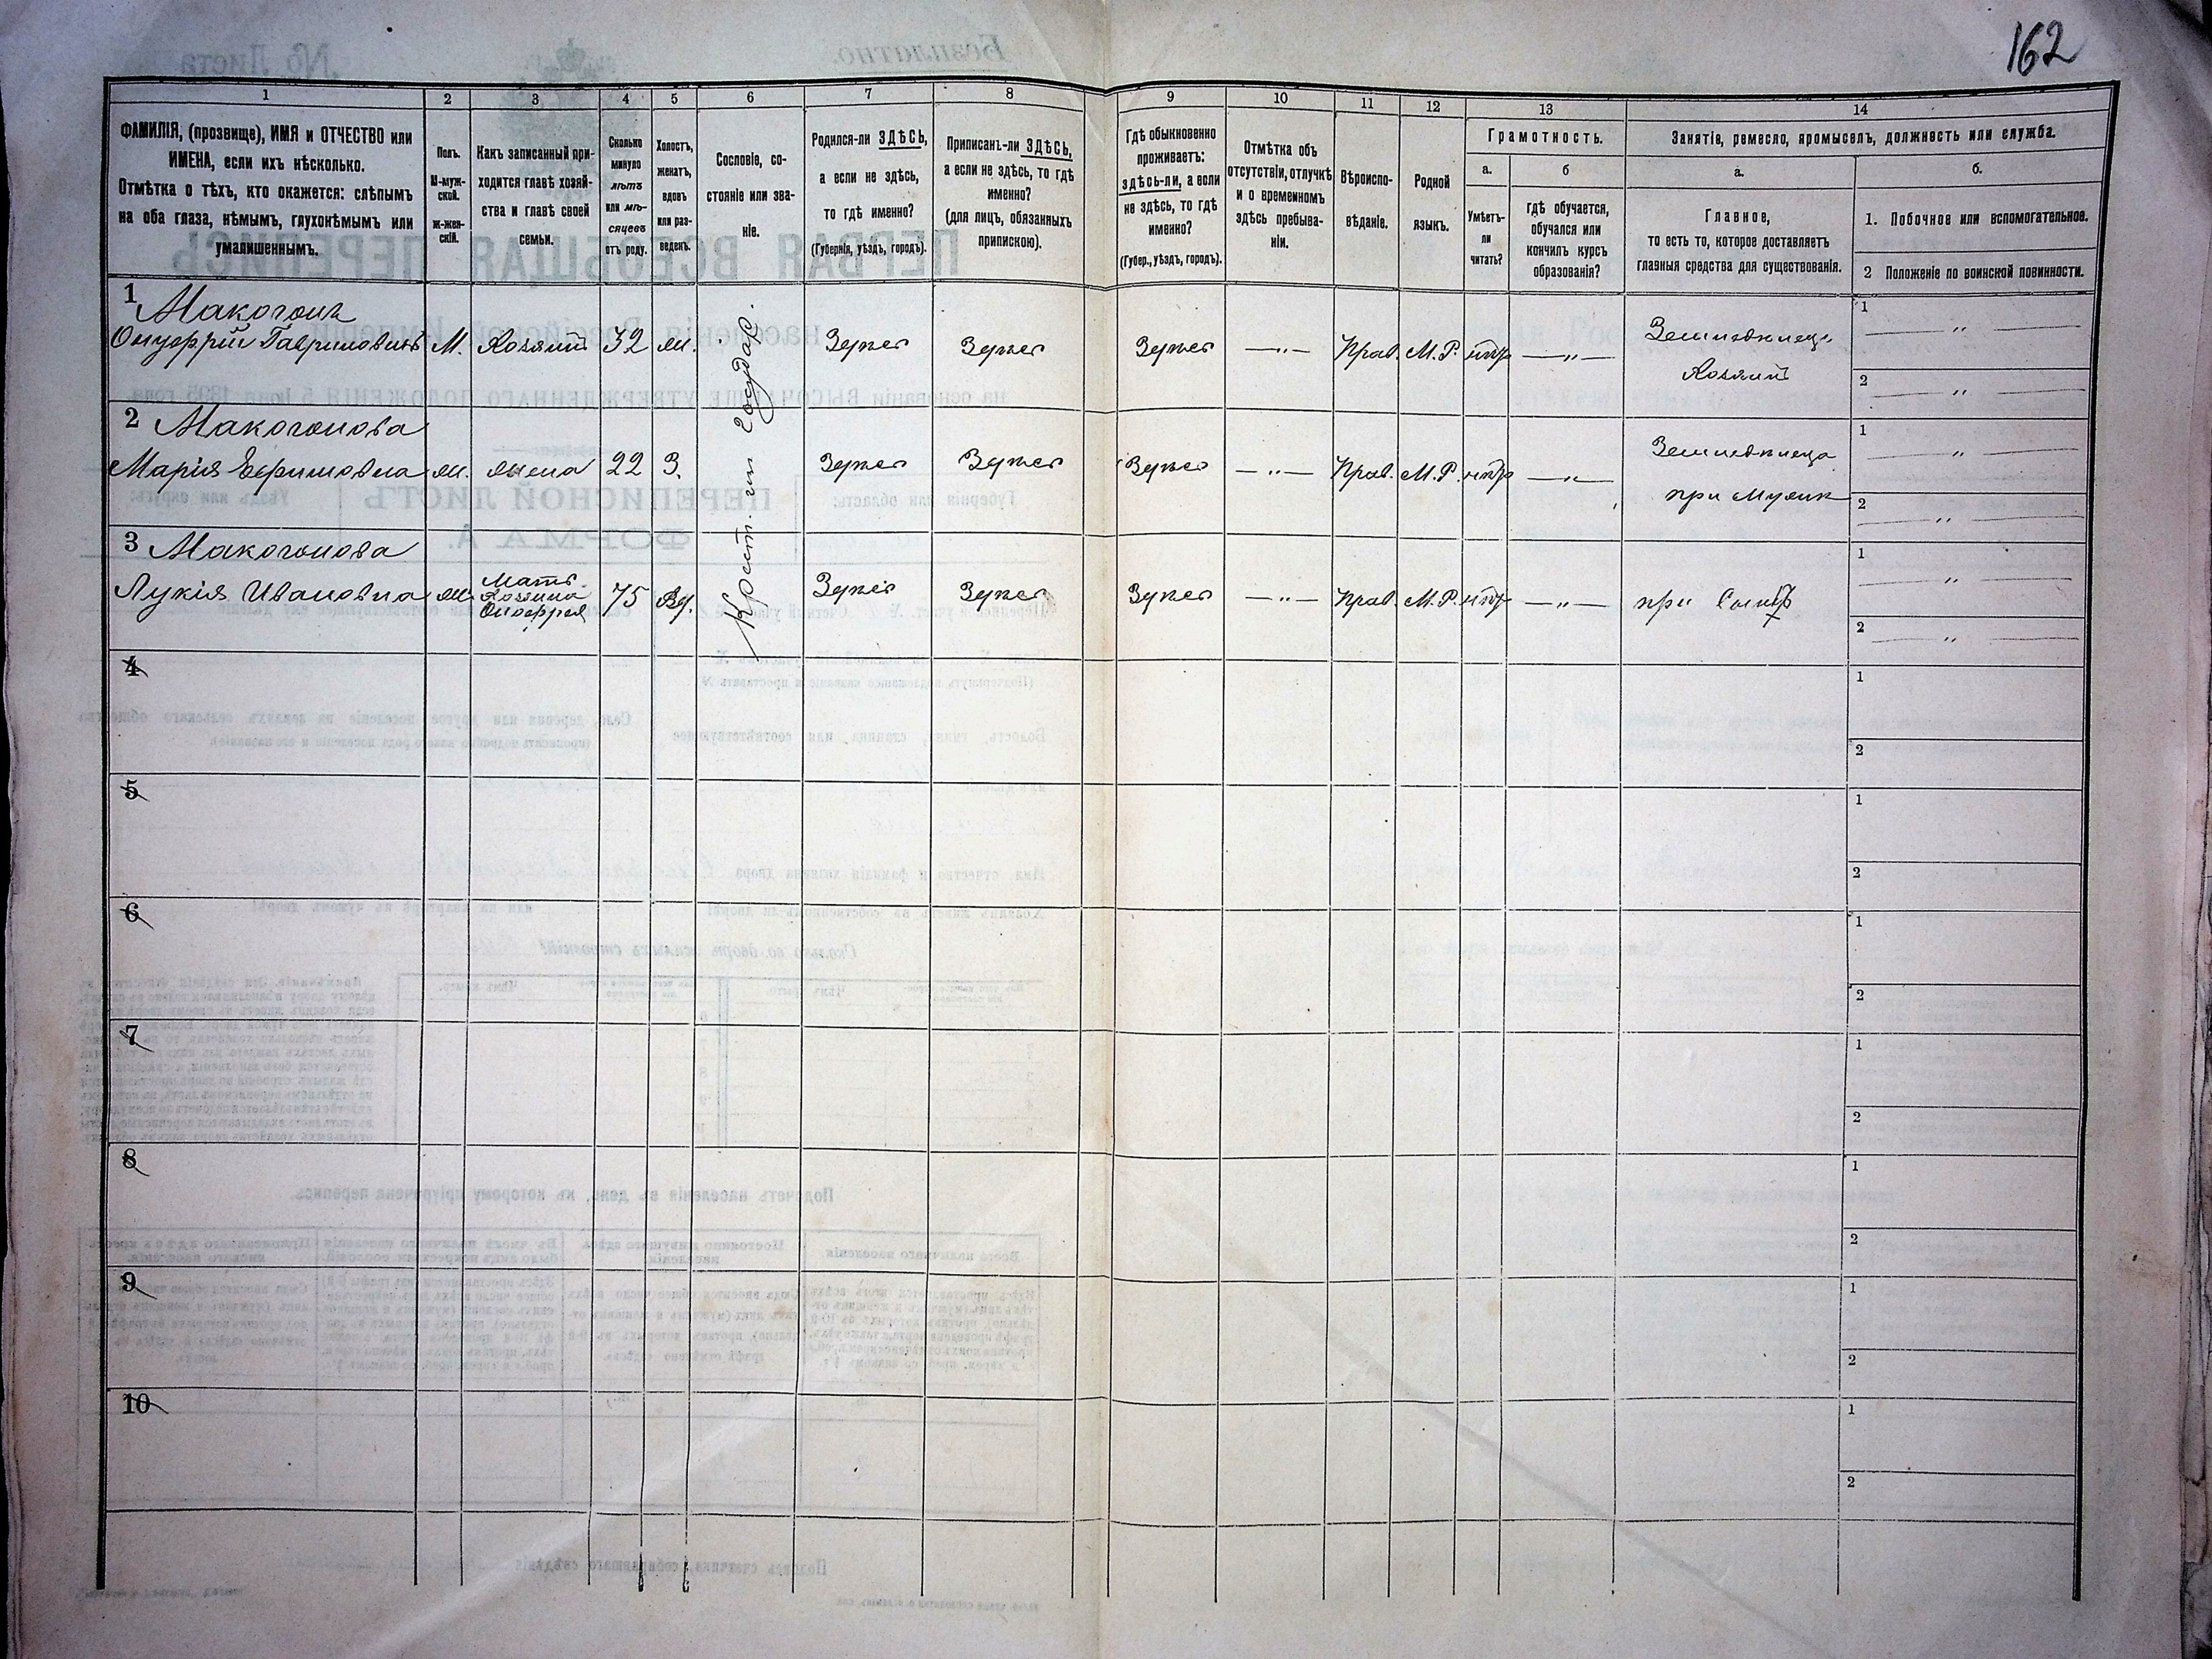 162
1 2 3 4 5 6 7 8 9 10 11 12 13 14
ФАМИЛІЯ, (прозвище), ИМЯ и ОТЧЕСТВО или
ИМЕНА, если ихъ нѣсколько.
Отмѣтка о тѣхъ, кто окажется: слѣпымъ
на оба глаза, нѣмымъ, глухонѣмымъ или
умалишеннымъ.
Полъ.
М-муж-
ской.
ж-жен-
скій.
Какъ записанный при-
ходится главѣ хозяй-
ства и главѣ своей
семьи.
Сколько
минуло
лѣтъ
или мѣ-
сяцевъ
отъ роду.
Холостъ,
женатъ,
вдовъ
или раз-
веденъ.
Сословіе, со-
стояніе или зва-
ніе.
Родился-ли ЗДѢСЬ,
а если не здѣсь,
то гдѣ именно?
(Губернія, уѣздъ, городъ).
Приписанъ-ли ЗДѢСЬ,
а если не здѣсь, то гдѣ
именно?
(для лицъ, обязанныхъ
припискою).
Гдѣ обыкновенно
проживаетъ:
здѣсь-ли, а если
не здѣсь, то гдѣ
именно?
(Губер., уѣздъ, городъ).
Отмѣтка объ
отсутствіи, отлучкѣ
и о временномъ
здѣсь пребыва-
ніи.
Вѣроиспо-
вѣданіе.
Родной
языкъ.
Грамотность.
а.
Умѣетъ-
ли
читать?
б
гдѣ обучается,
обучался или
кончилъ курсъ
образованія?
Занятіе, ремесло, промыселъ, должность или служба.
а.
Главное,
то есть то, которое доставляетъ
главныя средства для существованія.
б.
1. Побочное или вспомогательное.
2 Положеніе по воинской повинности.
1 Макогонъ
Онуфрій Гавриловичъ М. Хозяинъ 32 ж. Здѣсь Здѣсь Здѣсь — „ — Прав. М.Р. нѣтъ — „ — Земледѣлецъ
Хозяинъ
1 „
2 „
Крест. из государ.
2 Макогонова
Марія Ефимовна ж. жена 22 З. Здѣсь Здѣсь Здѣсь — „ — Прав. М.Р. нѣтъ — „ — Земледѣлица
при Мужѣ
1 „
2 „
3 Макогонова
Лукія Ивановна ж. Мать
Хозяина
Онофрея 75 Вд. Здѣсь Здѣсь Здѣсь — „ — Прав. М.Р. нѣтъ — „ — при Сынѣ
1 „
2 „
4 1
2
5 1
2
6 1
2
7 1
2
8 1
2
9 1
2
10 1
2